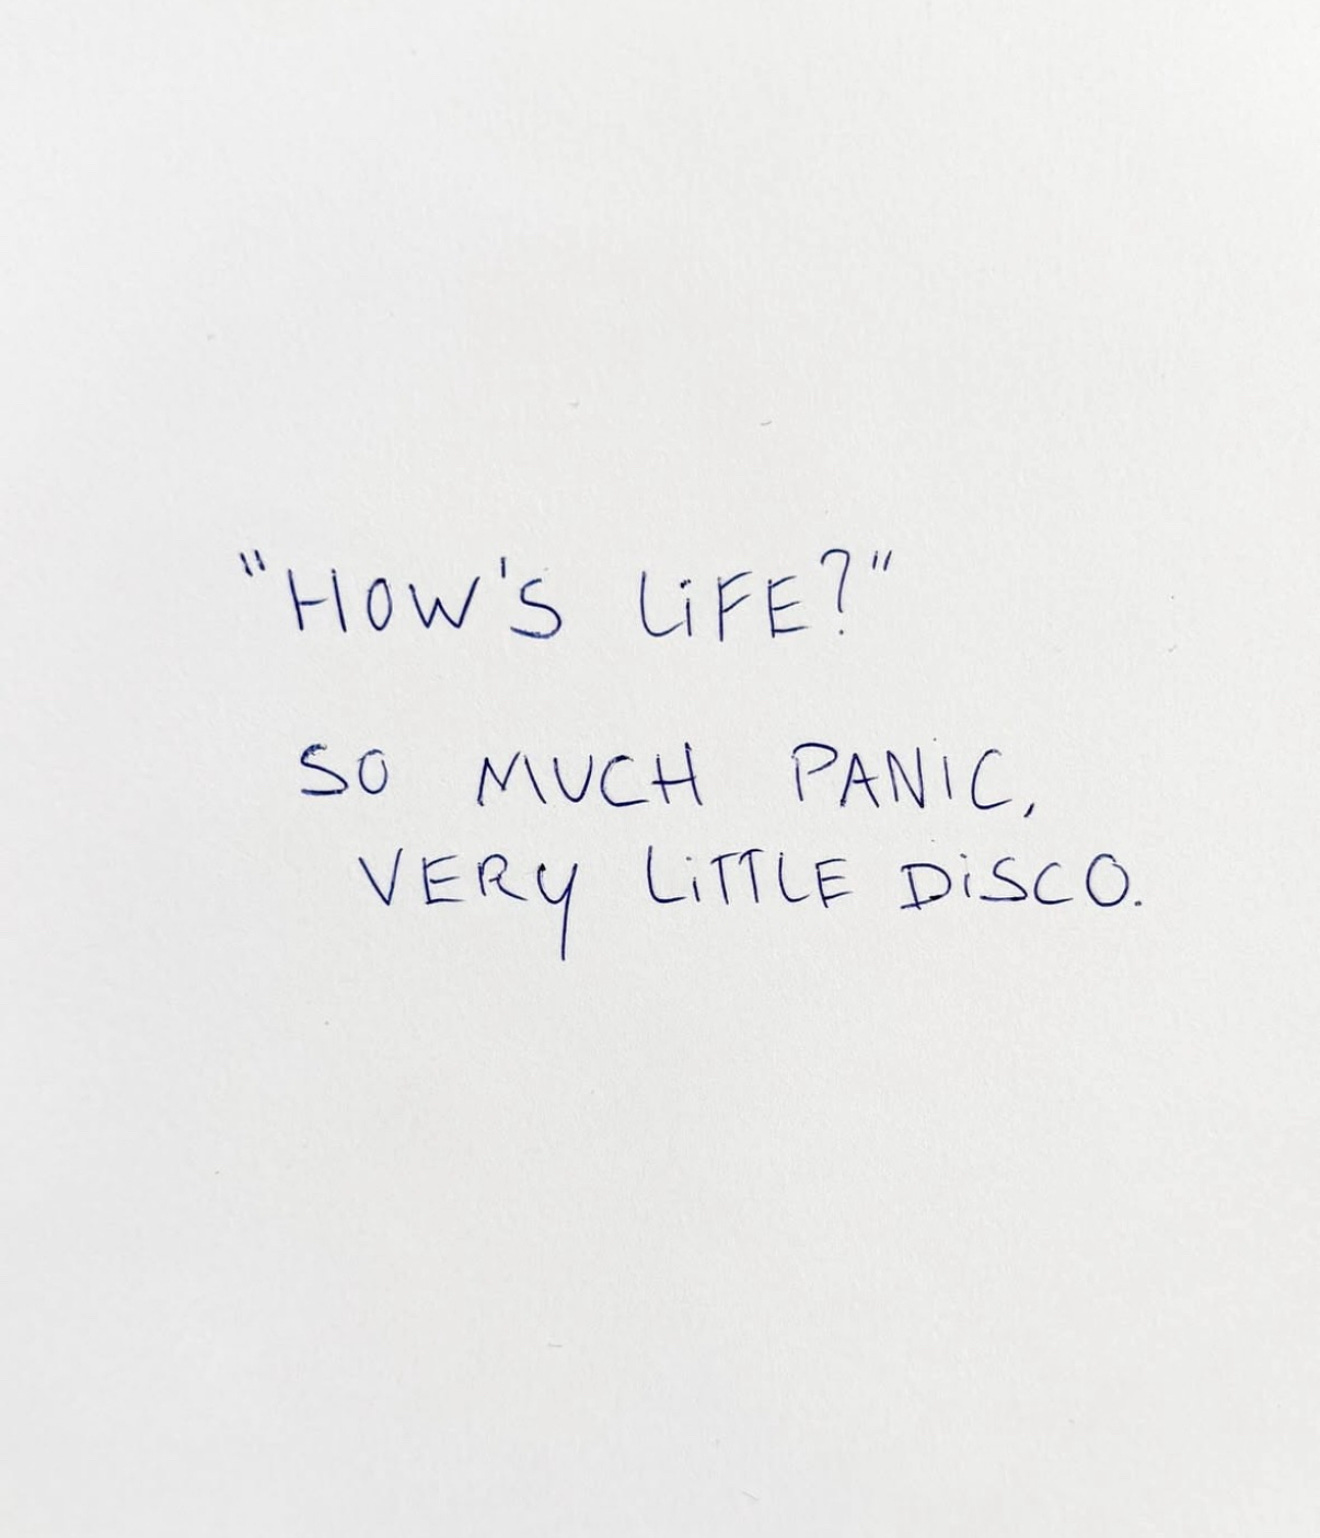 "HOW'S LiFE?"
SO MUCH PANiC,
VERY LiTTLE DiSCO.